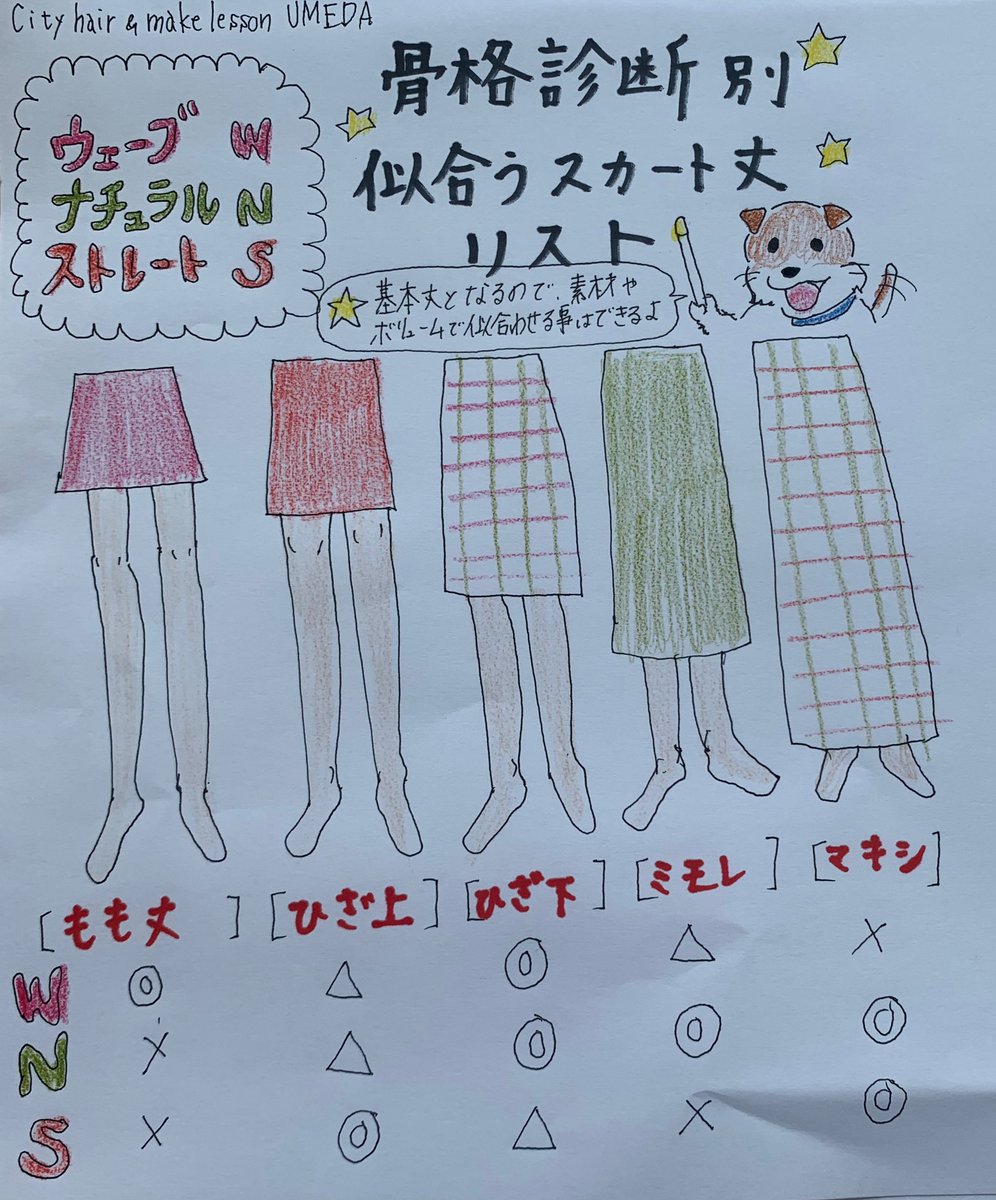 City hair & make lesson UMEDA
骨格診断別
似合うスカート丈
リスト
ウェーブ W
ナチュラル N
ストレート S
基本丈となるので、素材や
ボリュームで似合わせる事はできるよ
[もも丈] [ひざ上] [ひざ下] [ミモレ] [マキシ]
W ◎ △ ◎ △ ×
N × △ ◎ ◎ ◎
S × ◎ △ × ◎